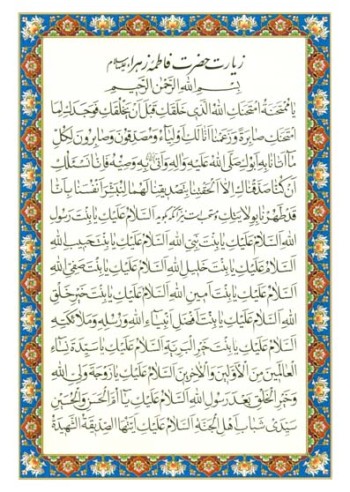 زیارت حضرت فاطمه زهرا علیهاالسلام
بِسْمِ اللهِ الرَّحْمٰنِ الرَّحیمِ
یا مُمْتَحَنَةُ امْتَحَنَكِ اللهُ الَّذی خَلَقَكِ قَبْلَ اَنْ یَخْلُقَكِ فَوَجَدَكِ لِمَا
امْتَحَنَكِ صابِرَةً وَزَعَمْنا اَنّا لَكِ اَوْلِیاءُ وَمُصَدِّقُونَ وَصابِرُونَ لِكُلِّ
ما اَتانا بِهِ اَبُوكِ صَلَّی اللهُ عَلَیْهِ وَآلِهِ وَاَتیٰ بِهِ وَصِیُّهُ فَاِنّا نَسْئَلُكِ
اِنْ كُنّا صَدَّقْناكِ اِلاّ اَلْحَقْتِنا بِتَصْدیقِنا لَهُما لِنُبَشِّرَ اَنْفُسَنا بِاَنّا
قَدْ طَهُرْنا بِوِلایَتِكِ اَلسَّلامُ عَلَیْكِ یا بِنْتَ رَسُولِ
اللهِ اَلسَّلامُ عَلَیْكِ یا بِنْتَ نَبِیِّ اللهِ اَلسَّلامُ عَلَیْكِ یا بِنْتَ حَبیبِ اللهِ
اَلسَّلامُ عَلَیْكِ یا بِنْتَ خَلیلِ اللهِ اَلسَّلامُ عَلَیْكِ یا بِنْتَ صَفِیِّ اللهِ
اَلسَّلامُ عَلَیْكِ یا بِنْتَ اَمینِ اللهِ اَلسَّلامُ عَلَیْكِ یا بِنْتَ خَیْرِ خَلْقِ
اللهِ اَلسَّلامُ عَلَیْكِ یا بِنْتَ اَفْضَلِ اَنْبِیاءِ اللهِ وَرُسُلِهِ وَمَلائِكَتِهِ
اَلسَّلامُ عَلَیْكِ یا بِنْتَ خَیْرِ الْبَرِیَّةِ اَلسَّلامُ عَلَیْكِ یا سَیِّدَةَ نِساءِ
الْعالَمینَ مِنَ الْاَوَّلینَ وَالْاخِرینَ اَلسَّلامُ عَلَیْكِ یا زَوْجَةَ وَلِیِّ اللهِ
وَخَیْرِ الْخَلْقِ بَعْدَ رَسُولِ اللهِ اَلسَّلامُ عَلَیْكِ یا اُمَّ الْحَسَنِ وَالْحُسَیْنِ
سَیِّدَیْ شَبابِ اَهْلِ الْجَنَّةِ اَلسَّلامُ عَلَیْكِ اَیَّتُهَا الصِّدّیقَةُ الشَّهیدَةُ